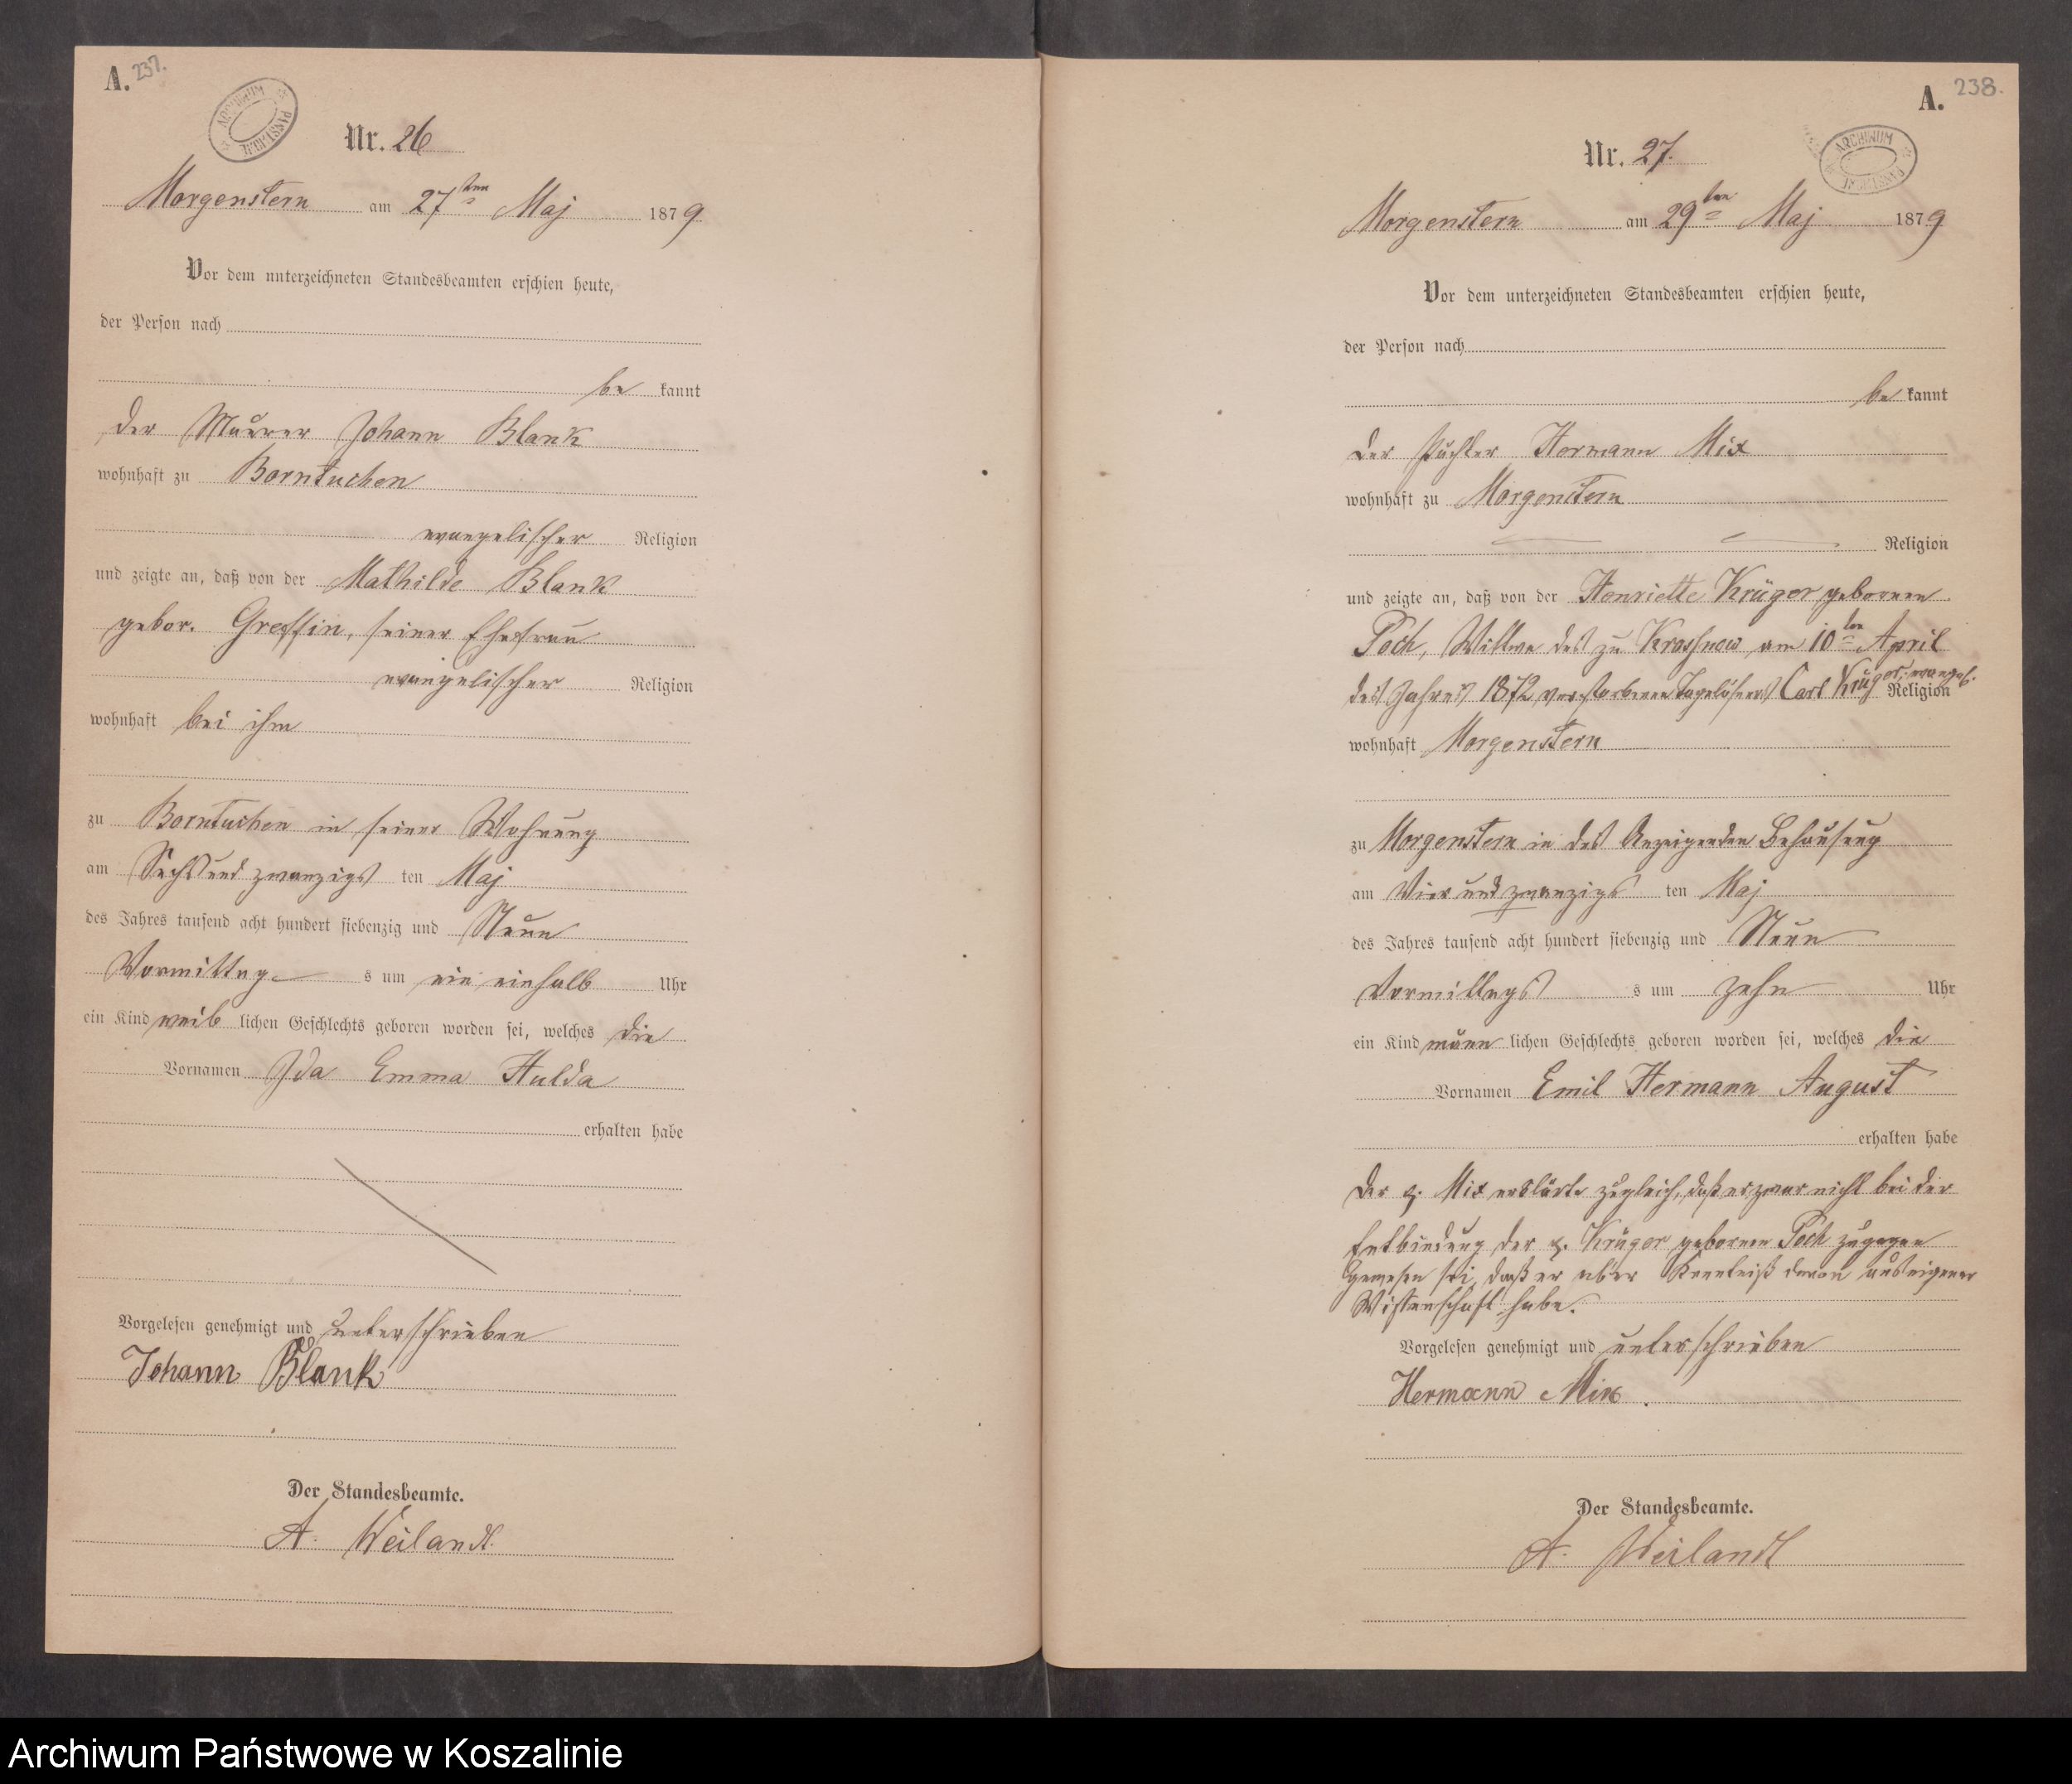 A. 237.
ARCHIWUM PAŃSTWOWE
Nr. 26
Morgenstern am 27ten Maj 1879
Vor dem unterzeichneten Standesbeamten erschien heute,
der Person nach
be kannt
der Maurer Johann Blank
wohnhaft zu Borntuchen
evangelischer Religion
und zeigte an, daß von der Mathilde Blank
gebor. Greffin, seiner Ehefrau
evangelischer Religion
wohnhaft bei ihm
zu Borntuchen in seiner Wohnung
am Sechsund zwanzigs ten Maj
des Jahres tausend acht hundert siebenzig und Neun
Vormittag s um ein einhalb Uhr
ein Kind weib lichen Geschlechts geboren worden sei, welches die
Vornamen Ida Emma Hulda
erhalten habe
Vorgelesen genehmigt und unterschrieben
Johann Blank
Der Standesbeamte.
A. Weilandt.
A. 238.
ARCHIWUM PAŃSTWOWE
Nr. 27.
Morgenstern am 29ten Maj 1879
Vor dem unterzeichneten Standesbeamten erschien heute,
der Person nach
be kannt
der Pächter Hermann Mix
wohnhaft zu Morgenstern
Religion
und zeigte an, daß von der Henriette Krüger geborenen
Poch, Wittwe des zu Krossnow am 10ten April
des Jahres 1872 verstorbenen Tagelöhners Carl Krüger, evangel. Religion
wohnhaft Morgenstern
zu Morgenstern in des Anzeigenden Behausung
am Vier und zwanzigs ten Maj
des Jahres tausend acht hundert siebenzig und Neun
Vormittags s um zehn Uhr
ein Kind männ lichen Geschlechts geboren worden sei, welches die
Vornamen Emil Hermann August
erhalten habe
Der p. Mix erklärte zugleich, daß er zwar nicht bei der
Entbindung der p. Krüger geborenen Poch zugegen
gewesen sei, daß er aber Kenntniß davon aus eigener
Wissenschaft habe.
Vorgelesen genehmigt und unterschrieben
Hermann Mix.
Der Standesbeamte.
A. Weilandt
Archiwum Państwowe w Koszalinie